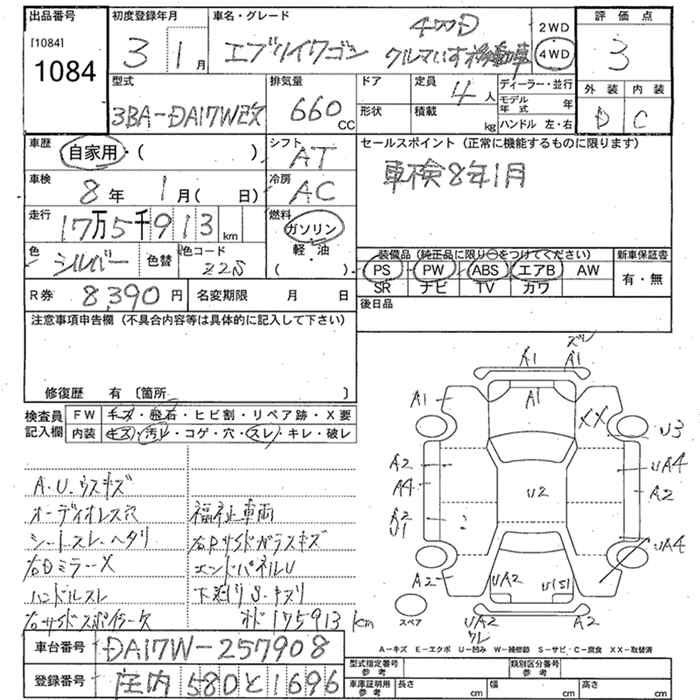 出品番号
[1084]
1084
初度登録年月
3 1月
車名・グレード
4WD
エブリイワゴン クルマいす移動車
2WD
4WD
評価点
3
外装 内装
D C
型式
3BA-DA17W改
排気量
660 CC
ドア
定員
4人
形状
積載
kg
ディーラー・並行
モデル年式 年
ハンドル 左・右
車歴
自家用・( )
シフト
AT
セールスポイント(正常に機能するものに限ります)
車検8年1月
車検
8年 1月( 日)
冷房
AC
走行
17万5千913 km
燃料
ガソリン
軽・油
( )
色
シルバー
色替
色コード
Z2S
装備品(純正品に限り○をつけてください)
PS PW ABS エアB AW
SR ナビ TV カワ
新車保証書
有・無
R券 8,390円
名変期限 月 日
後日品
注意事項申告欄(不具合内容等は具体的に記入して下さい)
修復歴 有〔箇所 〕
検査員記入欄
FW キズ・飛石・ヒビ割・リペア跡・X要
内装 キズ・汚レ・コゲ・穴・スレ・キレ・破レ
A.U.ウスキズ
オーディオレス穴
福祉車両
シートスレ・ヘタリ
右Rサイドガラスキズ
右Dミラー×
エンドパネルU
ハンドルスレ
下廻りS・キズリ
右サイドスポイラーケ
メド175913km
A1 A1 ズレ
A1 A1 XX
U3
A2 UA4
A4 A2
U2
A2
U1
UA4
A2 UA2 U(S)
スペア
UA2 A2
ワレ
A-キズ E-エクボ U-凹み W-補修跡 S-サビ・C-腐食 XX-取替済
車台番号
DA17W-257908
登録番号
庄内580と1696
型式指定番号
参考
類別区分番号
参考
車庫証明用
参考
長さ cm
幅 cm
高さ cm